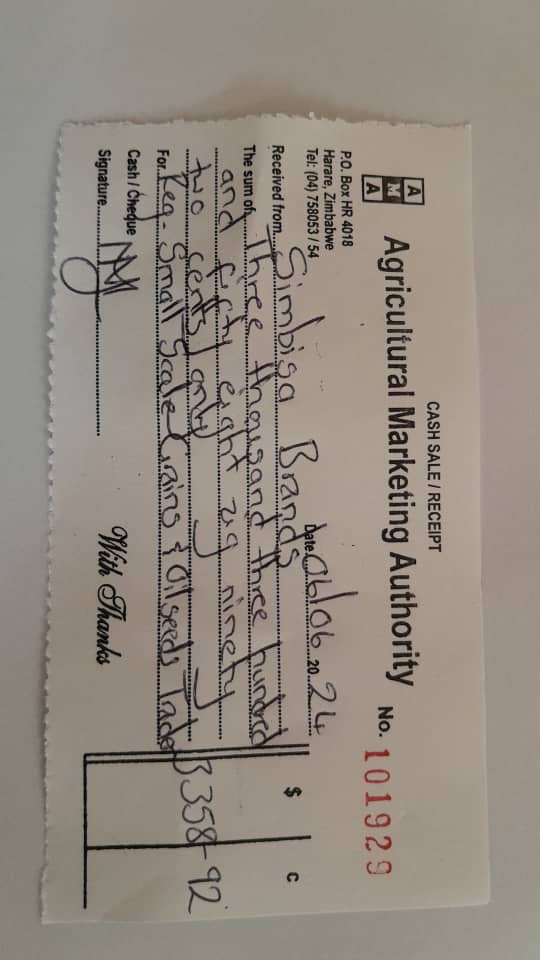 CASH SALE / RECEIPT
A M A
Agricultural Marketing Authority No. 101929
P.O. Box HR 4018
Harare, Zimbabwe
Tel: (04) 758053 / 54
Date 06/06 20 24
Received from Simbisa Brands
The sum of Three thousand three hundred
and fifty eight zig ninety
two cents only
For Reg - Small Scale Grains & Oilseeds Trader
$ c
3 358-92
Cash / Cheque
Signature
With Thanks